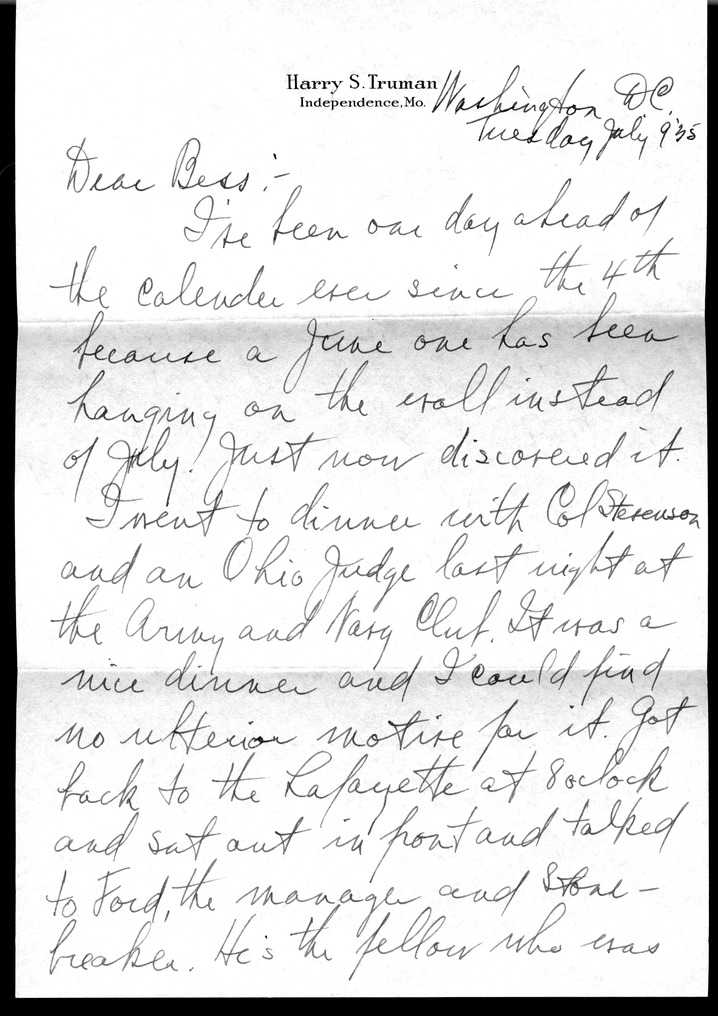 Harry S. Truman
Independence, Mo.
Washington D.C.
Tuesday July 9 '35
Dear Bess :-
I've been one day ahead of
the calender ever since the 4th
because a June one has been
hanging on the wall instead
of July. Just now discovered it.
I went to dinner with Col Stevenson
and an Ohio Judge last night at
the Army and Navy Club. It was a
nice dinner and I could find
no ulterior motive for it. Got
back to the Lafayette at 8 oclock
and sat out in front and talked
to Ford, the manager and Stone-
breaker. He's the fellow who was